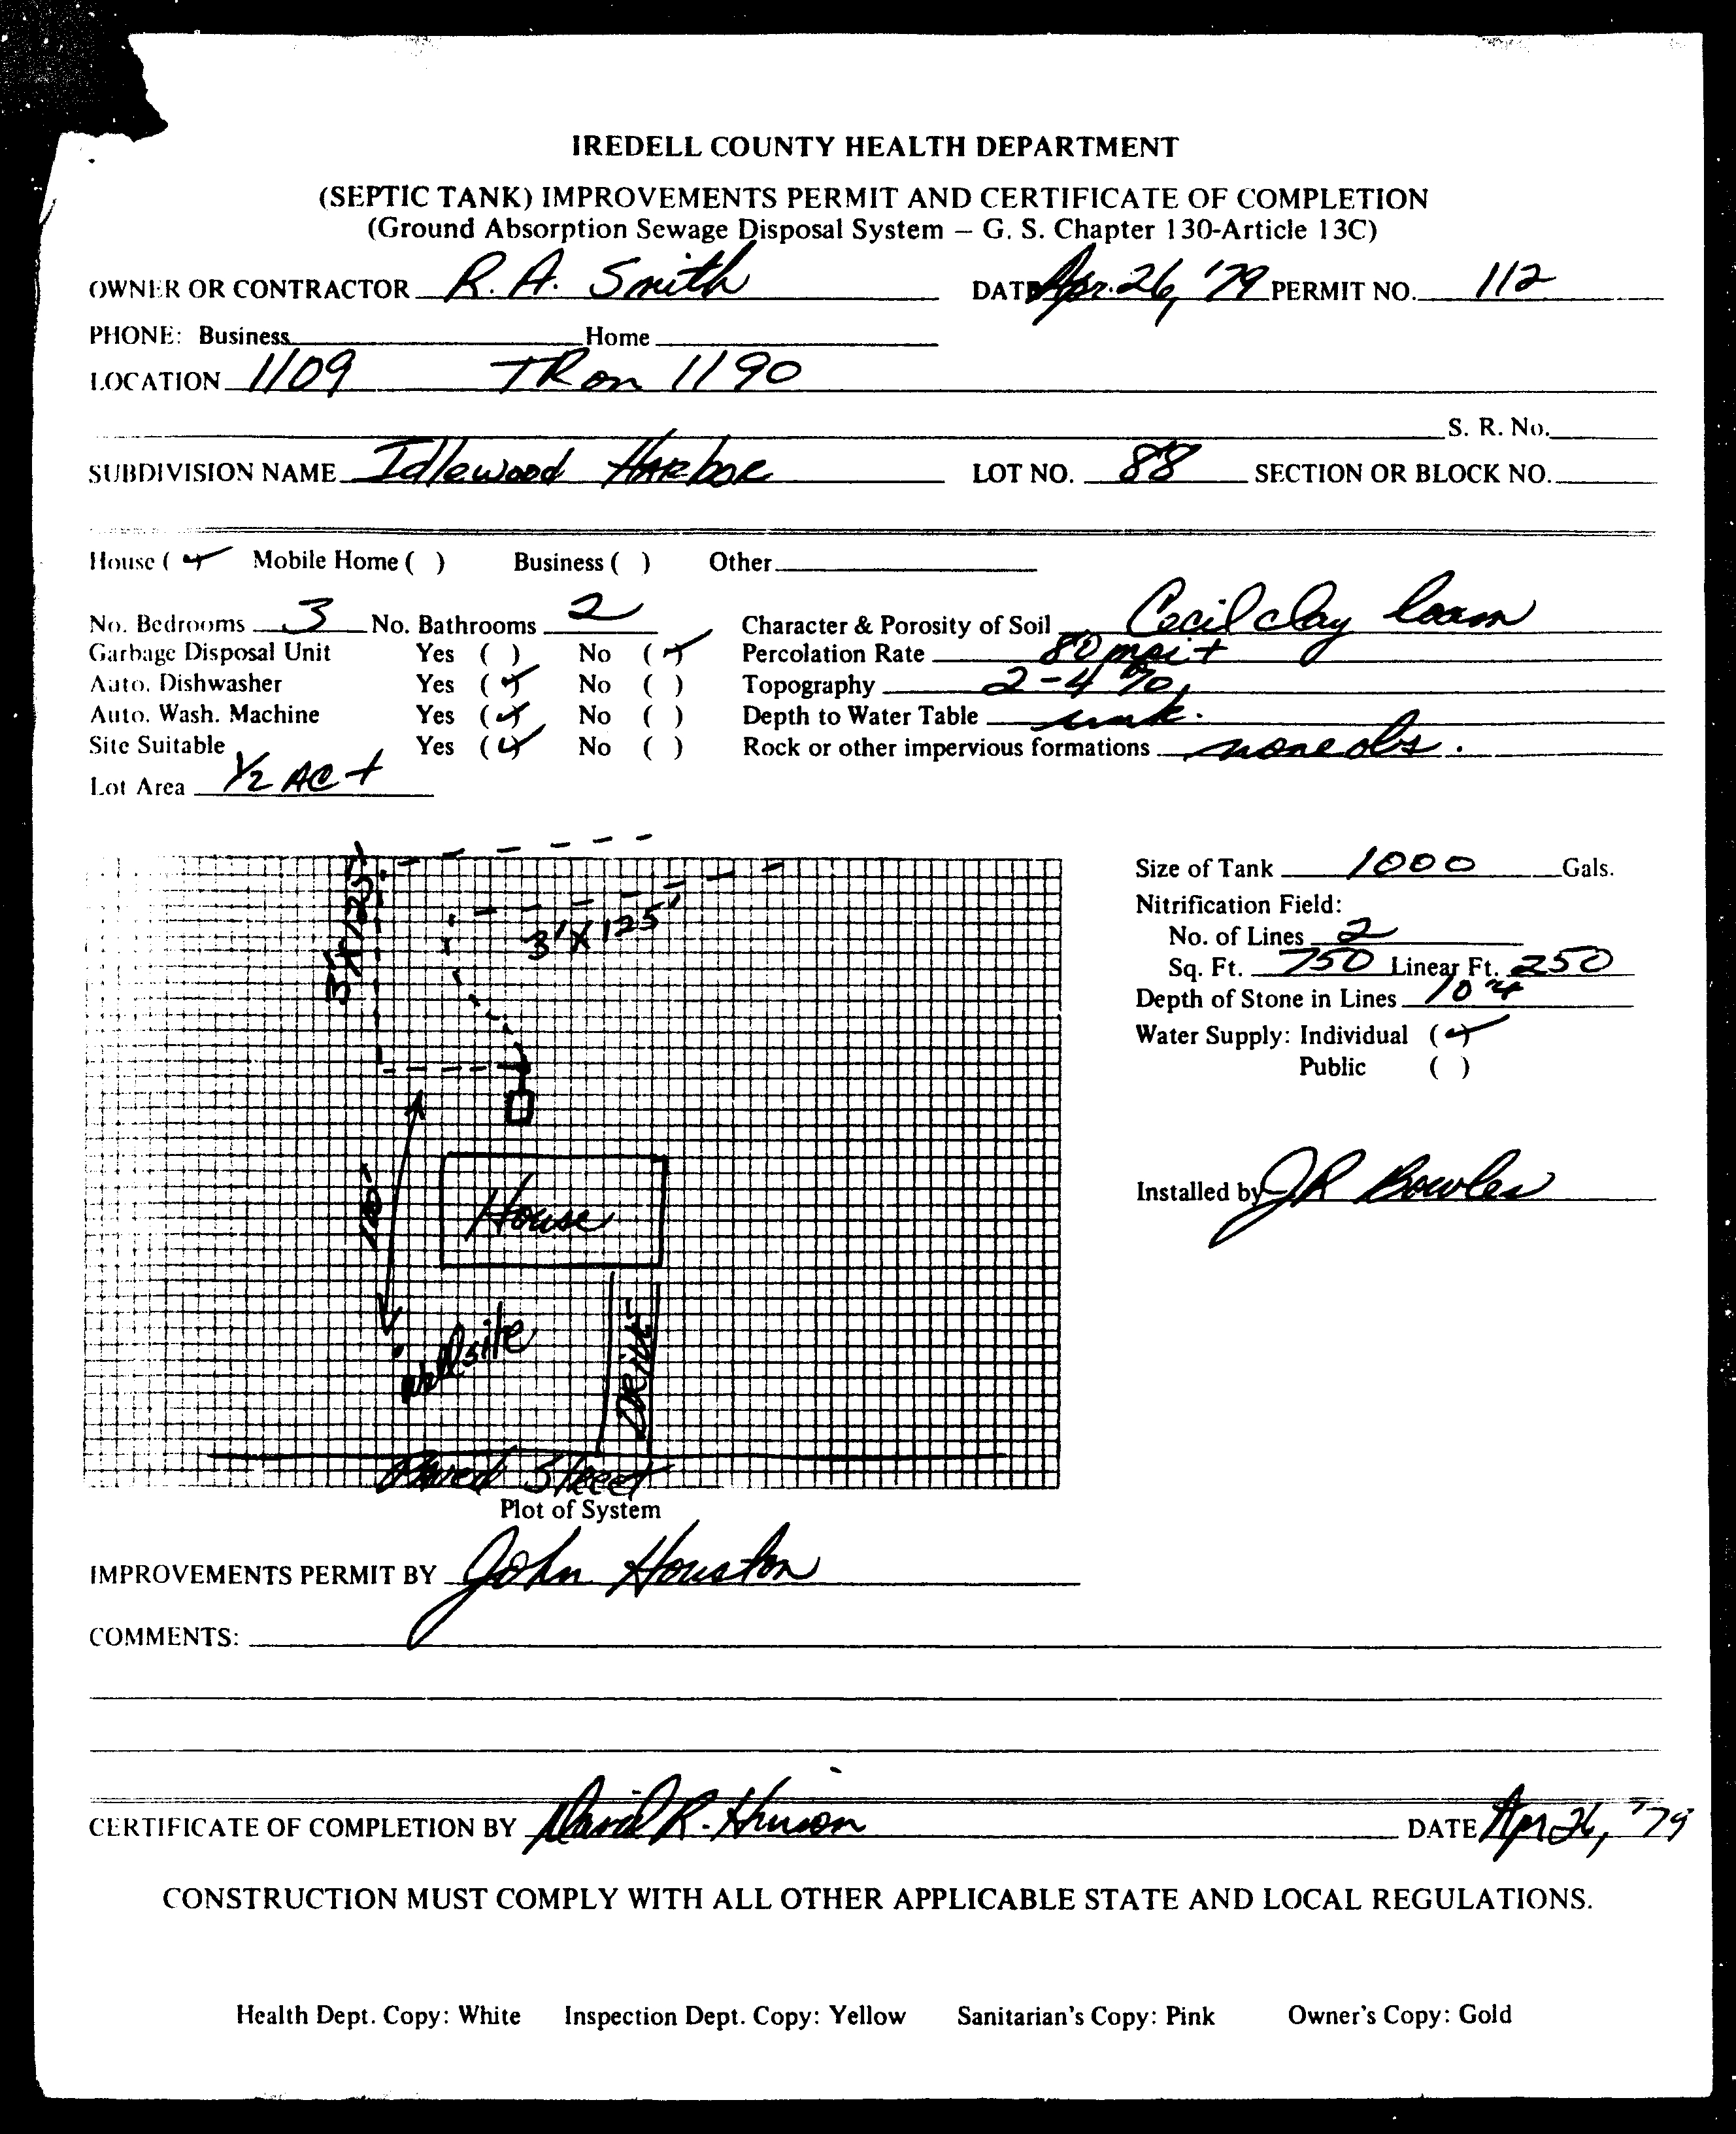 IREDELL COUNTY HEALTH DEPARTMENT
(SEPTIC TANK) IMPROVEMENTS PERMIT AND CERTIFICATE OF COMPLETION
(Ground Absorption Sewage Disposal System – G. S. Chapter 130-Article 13C)
OWNER OR CONTRACTOR R. A. Smith DATE Apr. 26, '79 PERMIT NO. 112
PHONE: Business Home
LOCATION 1109 TR on 1190
S. R. No.
SUBDIVISION NAME Idlewood Harbor LOT NO. 88 SECTION OR BLOCK NO.
House ( ) Mobile Home ( ) Business ( ) Other
No. Bedrooms 3 No. Bathrooms 2 Character & Porosity of Soil Cecil clay loam
Garbage Disposal Unit Yes ( ) No (✓) Percolation Rate 80 mpi+
Auto. Dishwasher Yes (✓) No ( ) Topography 2-4%
Auto. Wash. Machine Yes (✓) No ( ) Depth to Water Table unk.
Site Suitable Yes (✓) No ( ) Rock or other impervious formations none obs.
Lot Area 1/2 AC +
3'X125'
3'X125'
100'
House
wellsite
DRIVE
Paved Street
Plot of System
Size of Tank 1000 Gals.
Nitrification Field:
No. of Lines 2
Sq. Ft. 750 Linear Ft. 250
Depth of Stone in Lines 10"
Water Supply: Individual (✓)
Public ( )
Installed by JR Bowles
IMPROVEMENTS PERMIT BY John Houston
COMMENTS:
CERTIFICATE OF COMPLETION BY David R. Hinson DATE Apr 26, '79
CONSTRUCTION MUST COMPLY WITH ALL OTHER APPLICABLE STATE AND LOCAL REGULATIONS.
Health Dept. Copy: White Inspection Dept. Copy: Yellow Sanitarian's Copy: Pink Owner's Copy: Gold